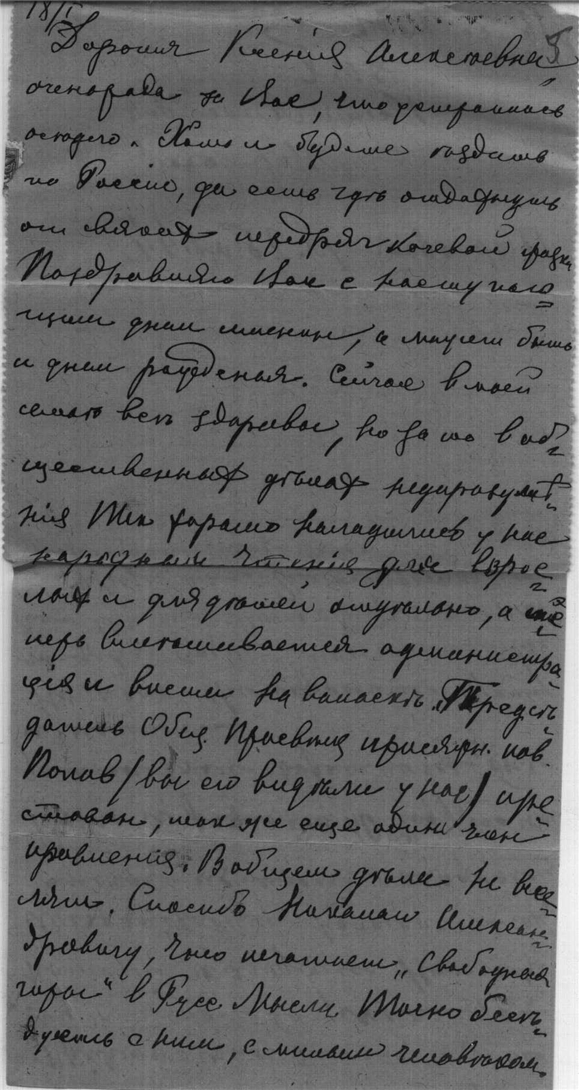 18/I
Дорогая Ксения Алексеевна
очень рада за Вас, что
Хоть и будете ездить
по России, да есть гдѣ отдохнуть
от всяких передряг кочевой
Поздравляю Вас с наступаю=
щим днем именин, а может быть
и днем рожденья. Сейчас в моей
семьѣ всѣ здоровы, но за то в об=
щественных дѣлах
нiя Так хорошо наладились у нас
народныя чтенiя для взрос=
лых и для дѣтей отдѣльно, а те=
перь вмешивается администра=
цiя и висим на волоскѣ. Предсѣ=
датель Общ. Просвѣщ присяжн. пов.
Попов / вы его видѣли у нас / аре=
стован, так же еще один член
правленiя. В общем дѣла не вес=
лят. Спасибо Алексан=
дровичу, что печатает „Свободныя
горы“ в Русс Мысли. Точно бесѣ=
дуешь с ним, с милым человѣком.